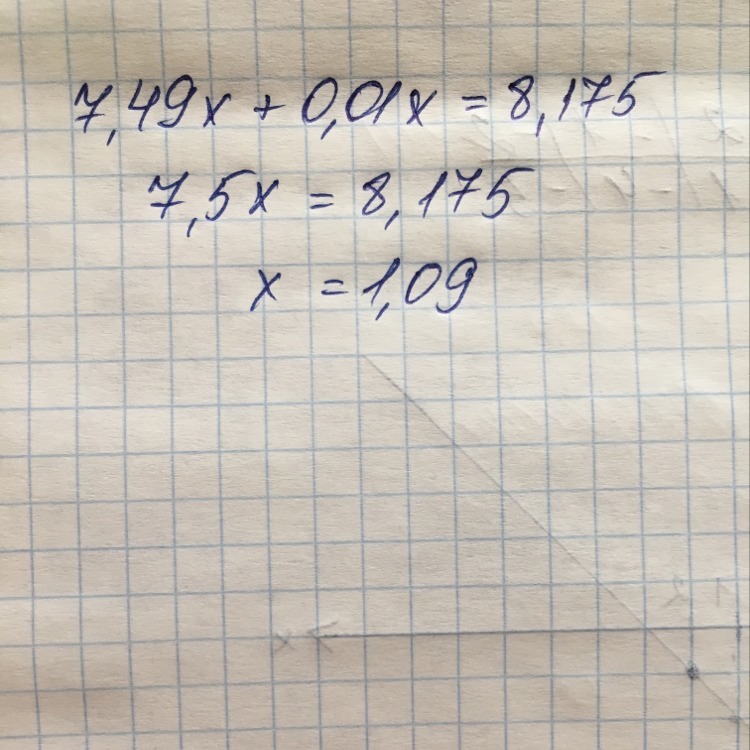 7,49x + 0,01x = 8,175
7,5x = 8,175
x = 1,09